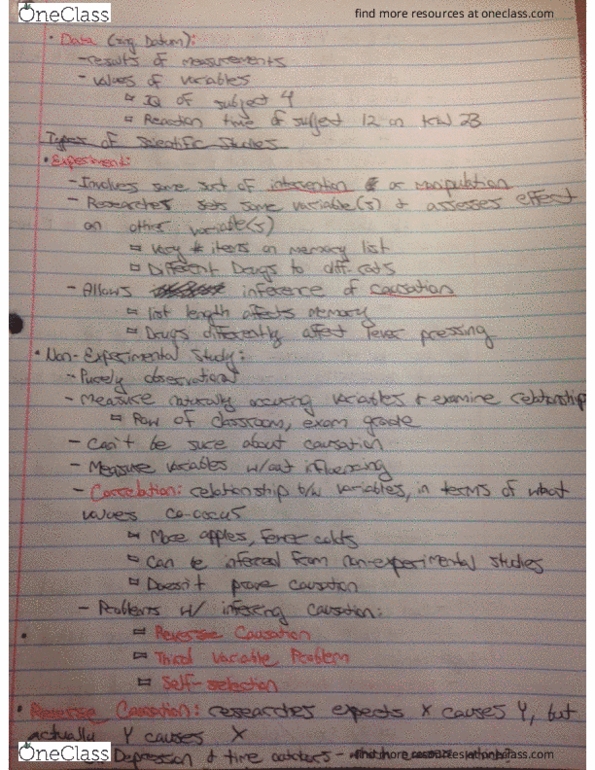 OneClass
find more resources at oneclass.com
• Data (sing. Datum):
- results of measurements
- values of variables
IQ of subject 4
Reaction time of subject 12 on KW 23
Types of Scientific Studies
• Experiment:
- Involves some sort of intervention or manipulation
- Researcher sets some variable(s) + assesses effect
on other variable(s)
Vary # items on memory list
Different Drugs to diff. rats
- Allows inference of causation
list length affects Memory
Drugs differently affect lever pressing
• Non-Experimental Study:
- Purely observational
- Measure naturally occuring variables + examine relationship
Row of classroom, exam grade
- Can't be sure about causation
- Measure variables w/out influencing
- Correlation: relationship b/w variables, in terms of what
values co-occur
More apples, fewer colds
Can be inferred from non-experimental studies
Doesn't prove causation
- Problems w/ infering causation:
Reverse Causation
Third Variable Problem
Self-selection
• Reverse Causation: researcher expects X causes Y, but
actually Y causes X
OneClass
Depression + time
find more resources at oneclass.com